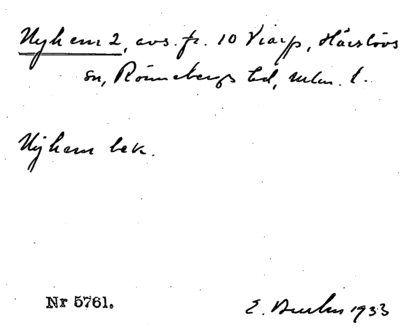 Nyhem 2, avs. fr. 10 Viarp, Härslövs
sn, Rönnebergs hd, Mlm. l.
Nyhem bek.
Nr 5761.
E. 1933